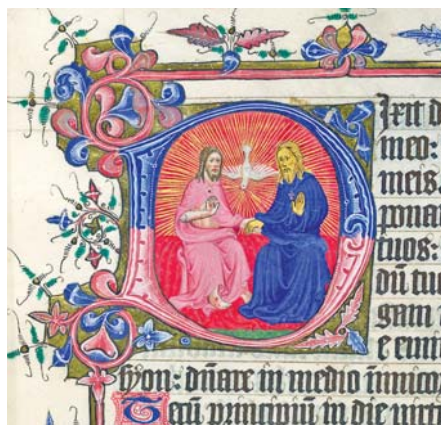 Dixit d
meo:
meis.
ponā
tuos:
dū tu
gam
e emit
syon: dn̄are in medio inimico
Tecū principiū in die virtu